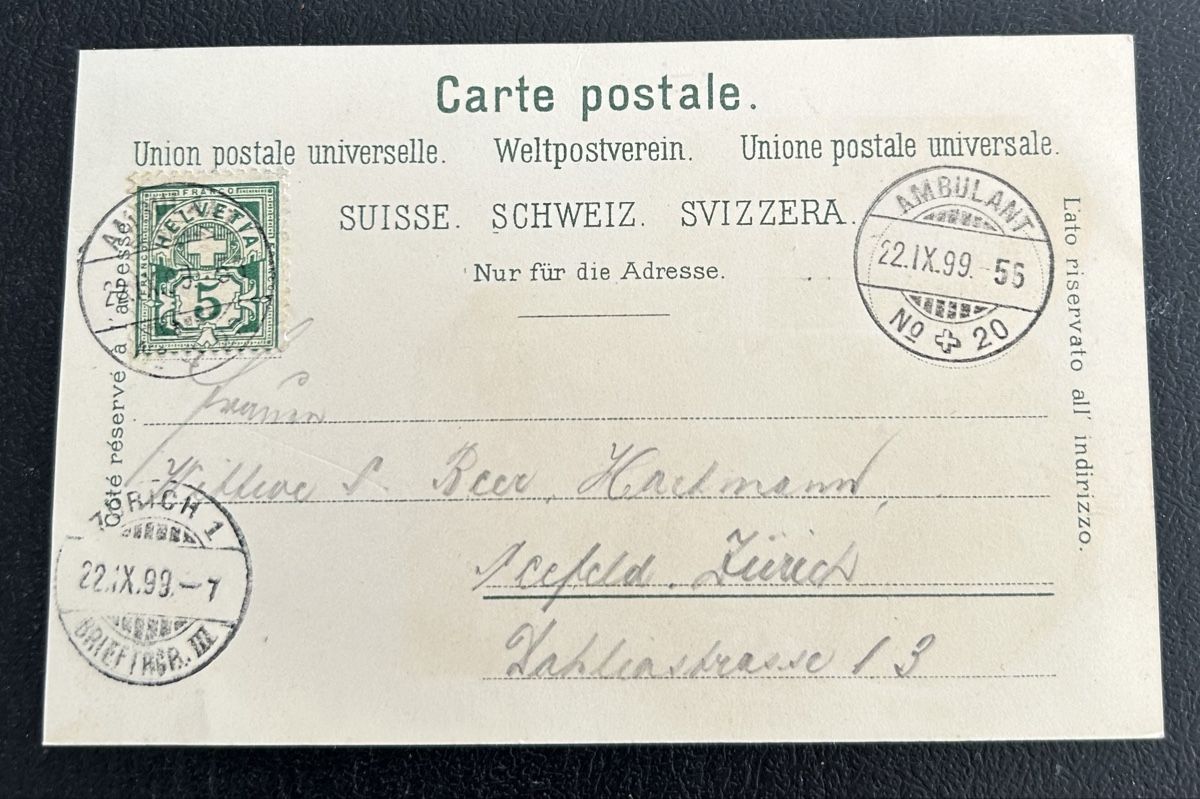 Carte postale.
Union postale universelle. Weltpostverein. Unione postale universale.
SUISSE. SCHWEIZ. SVIZZERA.
Nur für die Adresse.
Côté réservé à l'adresse
Lato riservato all' indirizzo.
FRANCO
HELVETIA
FRANCO
5
AMBULANT
22.IX.99.-55
No 20
Frauen
Wittwe S. Beer, Hartmann,
Seefeld. Zürich
Dahliastrasse 13
ZÜRICH 1
22.IX.99.-7
BRIEFTRGR. III